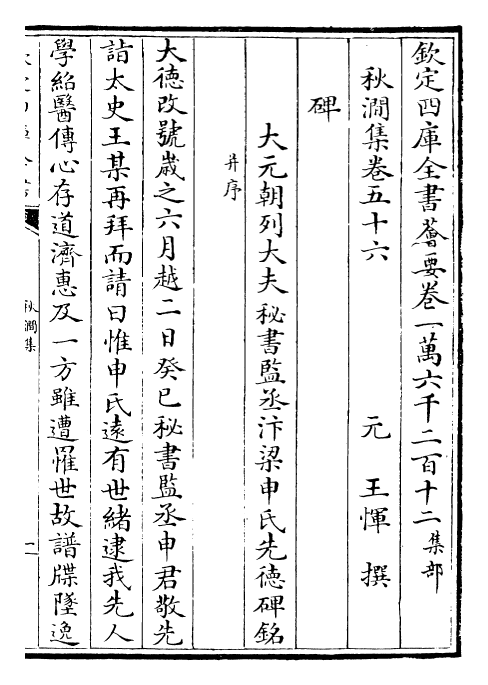 欽定四庫全書薈要卷一萬六千二百十二集部
秋澗集卷五十六　　元　王惲　撰
碑
大元朝列大夫秘書監丞汴梁申氏先德碑銘
并序
大德改號歲之六月越二日癸巳秘書監丞申君敬先
詣太史王某再拜而請曰惟申氏遠有世緒逮我先人
學紹醫傳心存道濟惠及一方雖遭罹世故譜牒墜逸
秋澗集
一